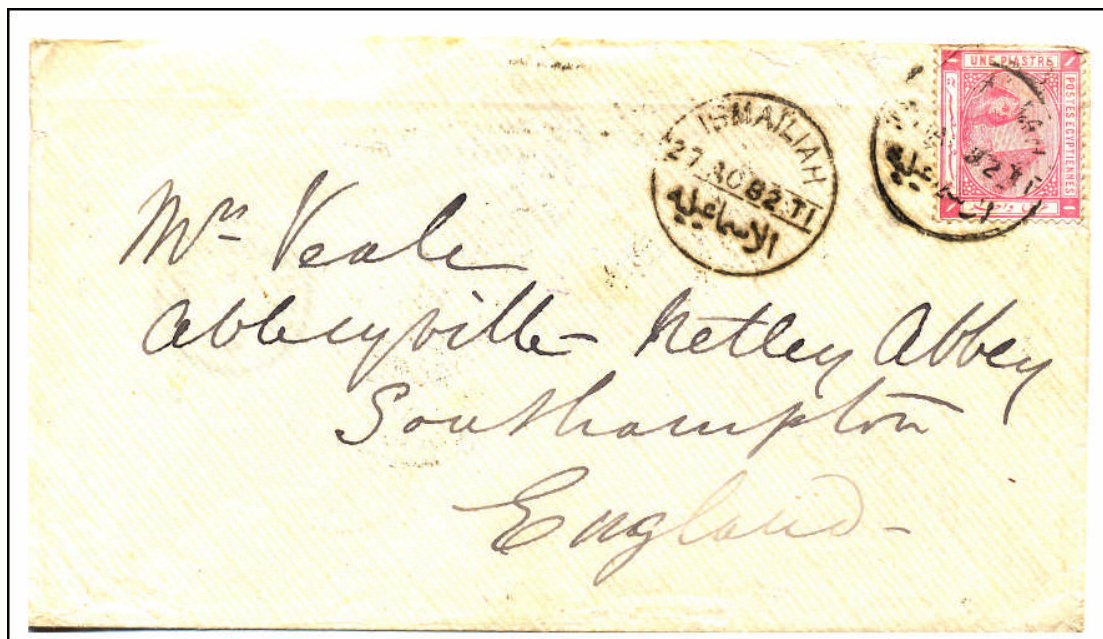 UNE PIASTRE
POSTES EGYPTIENNES
ISMAILIAH
27 AO 82 T1
الاسماعيليه
Mrs Veale
Abbeyville - Netley Abbey
Southampton
England -